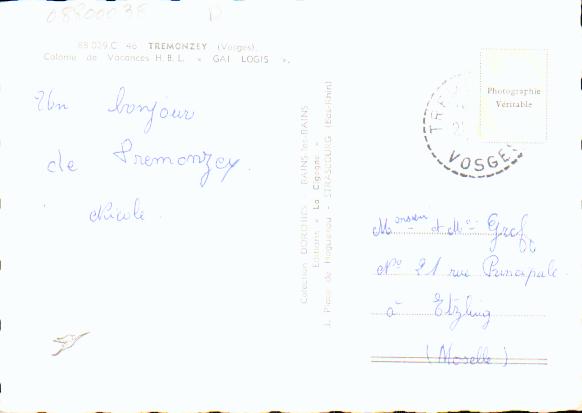 08800038 D
88.029.C 46 TREMONZEY (Vosges).
Colonie de Vacances H.B.L. « GAI LOGIS ».
Un bonjour
de Tremonzey.
Nicole.
Collection DOROTHÉE - BAINS-les-BAINS
Editions « La Cigogne »
Place de Haguenau - STRASBOURG (Bas-Rhin)
Photographie
Véritable
VOSGES
Monsieur et Me Gref
N° 21 rue Principale.
à Etzling
(Moselle)